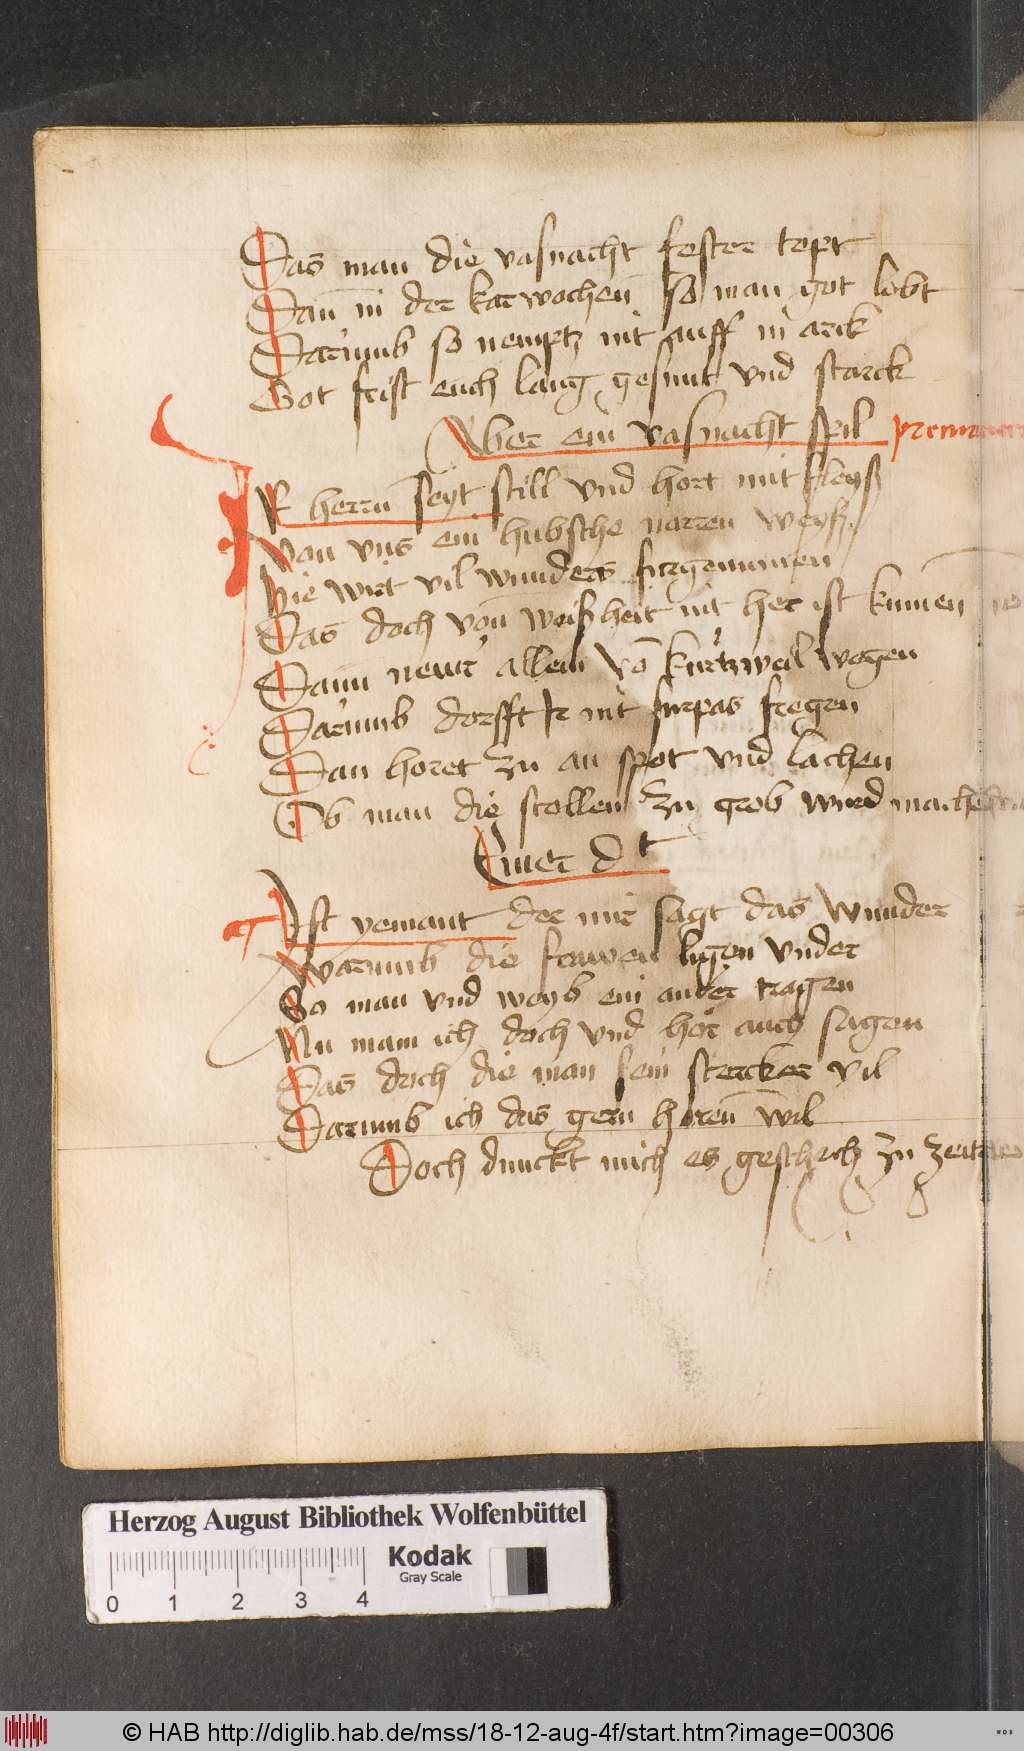 Das man die vasnacht fester topt
Dan̄ in der karwochen̄ so man got lobt
Darumb so nemptz nit auff in arck
Got frist euch lang gesunt vnd starck
Aber ein vasnacht spil
IR herrn seyt still vnd hort mit fleyß
Von vns ein hubsche narren weyß
hie wirt vil wunders furgenummen
Das doch von weißheit nit her ist kumen
Dann newr allein vō kurtzweil wegen
Darumb dorfft Ir nit furpas fregen
Dan horet zu an spot vnd lachen
Ob man die stollen zu grob wurd machen
Einer dt
Ist yemant der mir sagt das wunder
Warumb die frawen ligen vnder
So man vnd weyb ein ander tragen
Nu main ich doch vnd hor auch sagen
Das doch die man sein stercker vil
Darumb ich das gern horen wil
Doch dunckt mich es geschech zu
Herzog August Bibliothek Wolfenbüttel
Kodak
Gray Scale
0 1 2 3 4
© HAB http://diglib.hab.de/mss/18-12-aug-4f/start.htm?image=00306